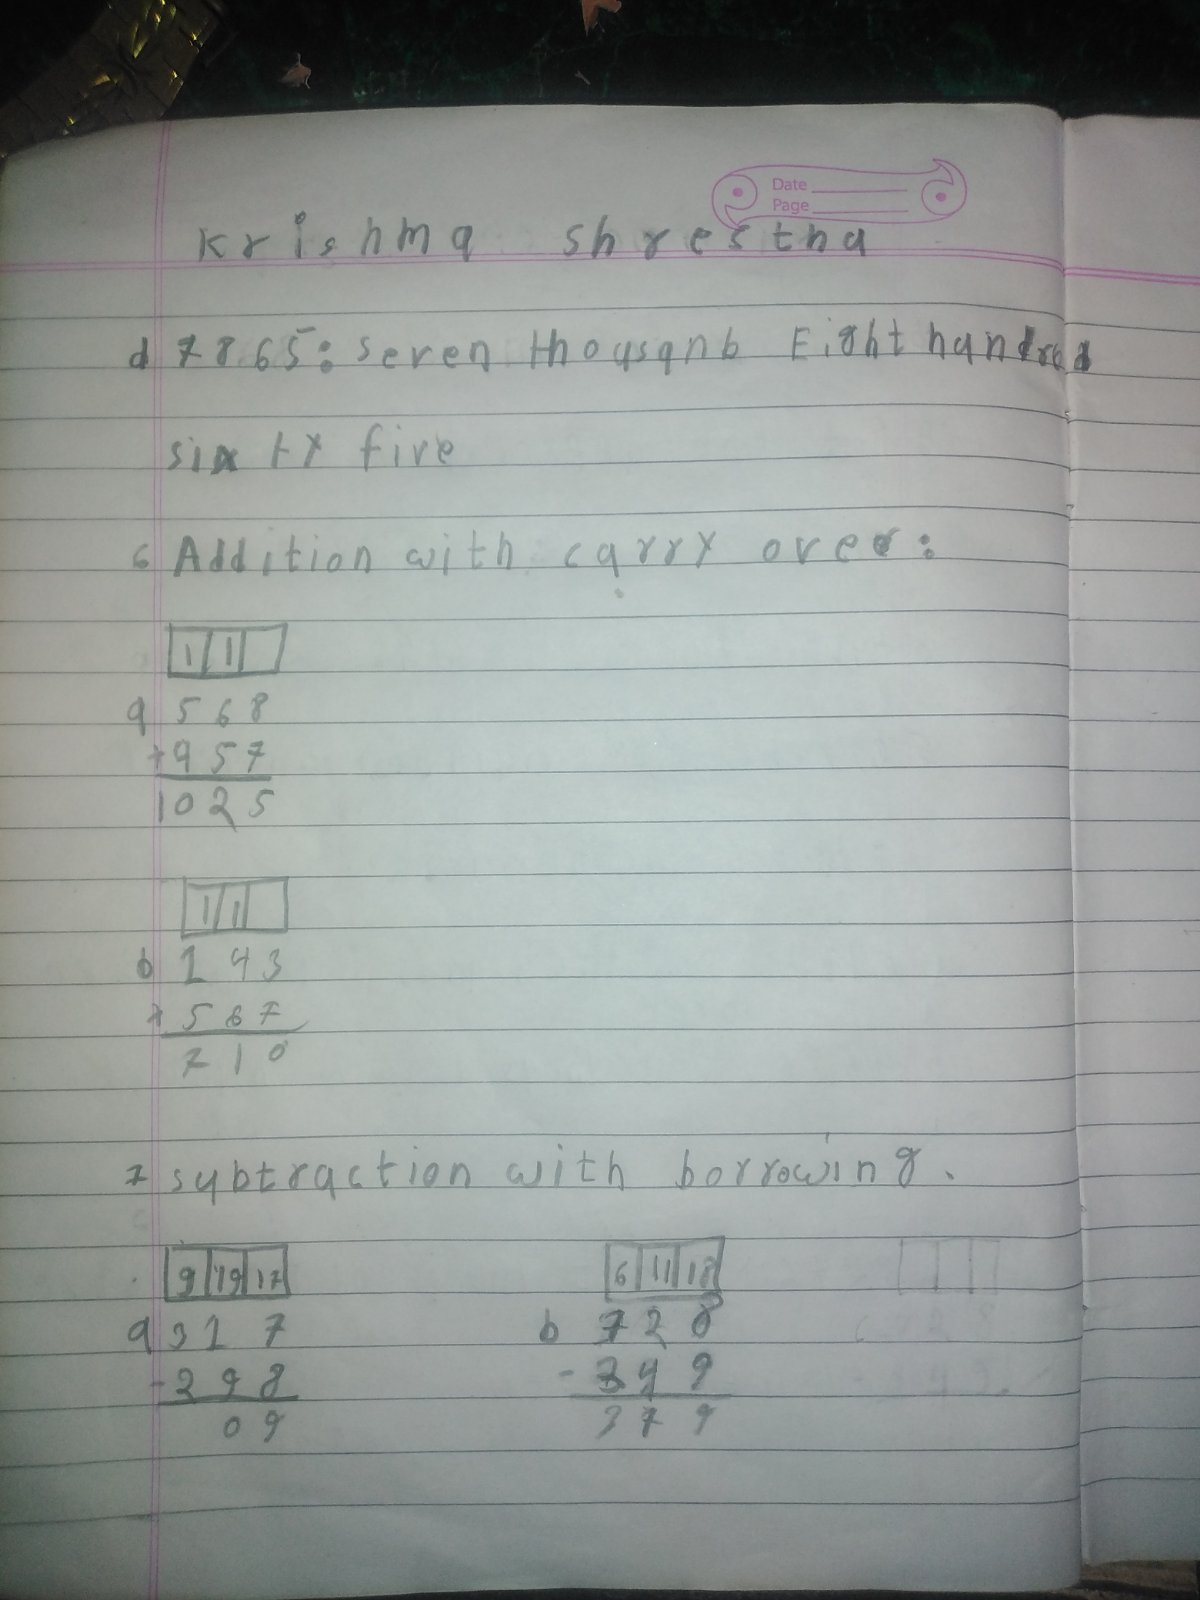 Date
Page
Krishma shrestha
d 7865: seven thousanb Eight hundred
sixty five
6 Addition with carry over:
1 1
a 568
+957
1025
1 1
b 143
+ 567
710
7 subtraction with borrowing.
9 19 17 6 11 18
a 317 b 728
-298 - 349
09 379